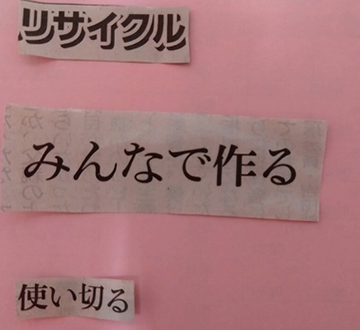 リサイクル
みんなで作る
使い切る